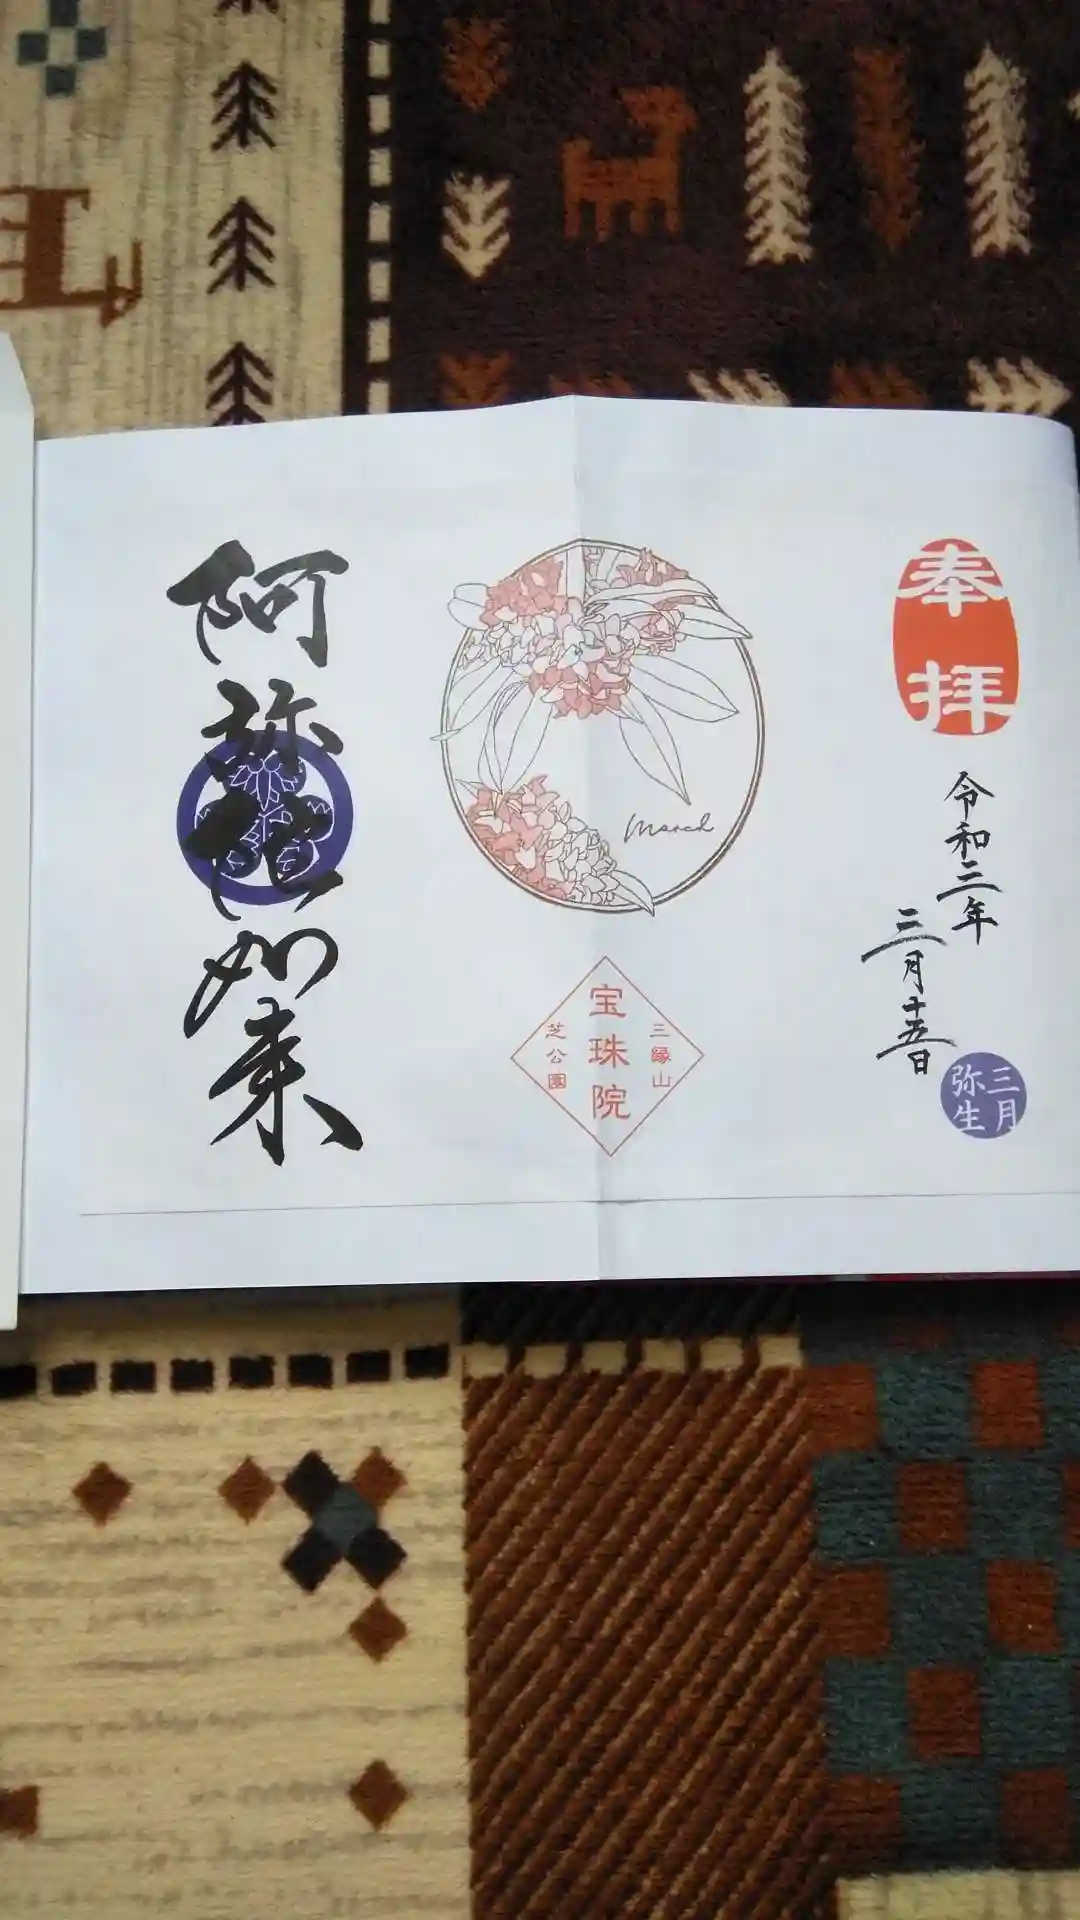 奉拝
令和三年
三月十五日
三月
弥生
March
三縁山
宝珠院
芝公園
阿弥陀如来